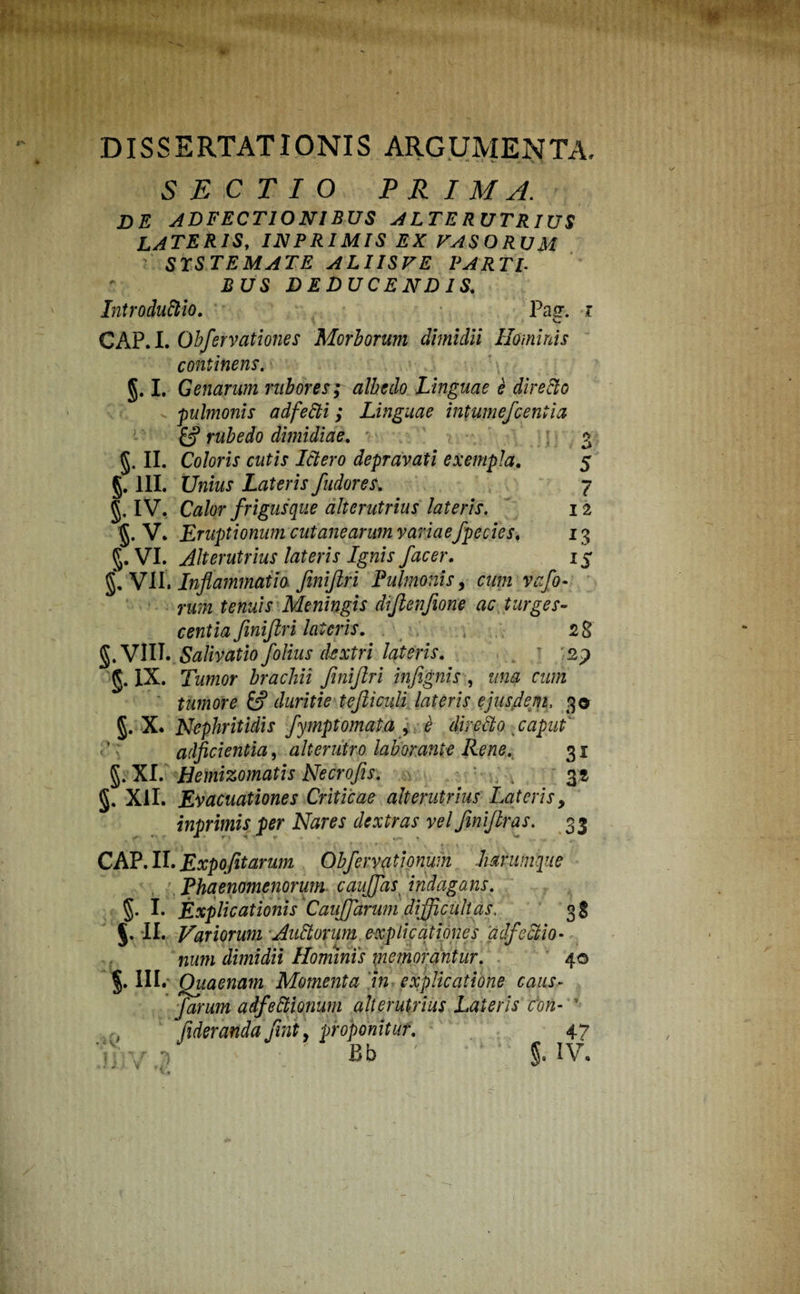 DISSERTATIONIS ARGUMENTA.
SECTIO PRIMA.
DE ADFECTIONIBUS ALTERUTRIUS
LATERIS, INPRIMIS EX VASORUM
SYSTEMATE ALIISVE PARTI-
BUS DEDUCENDIS.
Introductio. Pag. 1
CAP. I. Obſervationes Morborum dimidii Hominis
continens.
§. I. Genarum rubores; albedo Linguae è directo
pulmonis adfecti; Linguae intumeſcentia
& rubedo dimidiae. 3
§. II. Coloris cutis Ictero depravati exempla. 5
§. III. Unius Lateris ſudores. 7
§. IV. Calor frigusque alterutrius lateris. 12
§. V. Eruptionum cutanearum variae ſpecies. 13
§. VI. Alterutrius lateris Ignis ſacer. 15
§. VII. Inflammatio ſiniſtri Pulmonis, cum vaſo-
rum tenuis Meningis diſtenſione ac turges-
centia ſiniſtri lateris. 28
§. VIII. Salivatio ſolius dextri lateris. 29
§. IX. Tumor brachii ſiniſtri inſignis, una cum
tumore & duritie teſticuli lateris ejusdem. 30
§. X. Nephritidis ſymptomata, è directo caput
adficientia, alterutro laborante Rene. 31
§. XI. Hemizomatis Necroſis. 32
§. XII. Evacuationes Criticae alterutrius Lateris,
inprimis per Nares dextras vel ſiniſtras. 33
CAP. II. Expoſitarum Obſervationum harumque
Phaenomenorum cauſſas indagans.
§. I. Explicationis Cauſſarum difficultas. 38
§. II. Variorum Auctorum explicationes adfectio-
num dimidii Hominis memorantur. 40
§. III. Quaenam Momenta in explicatione caus-
ſarum adfectionum alterutrius Lateris con-
ſideranda ſint, proponitur. 47
Bb §. IV.